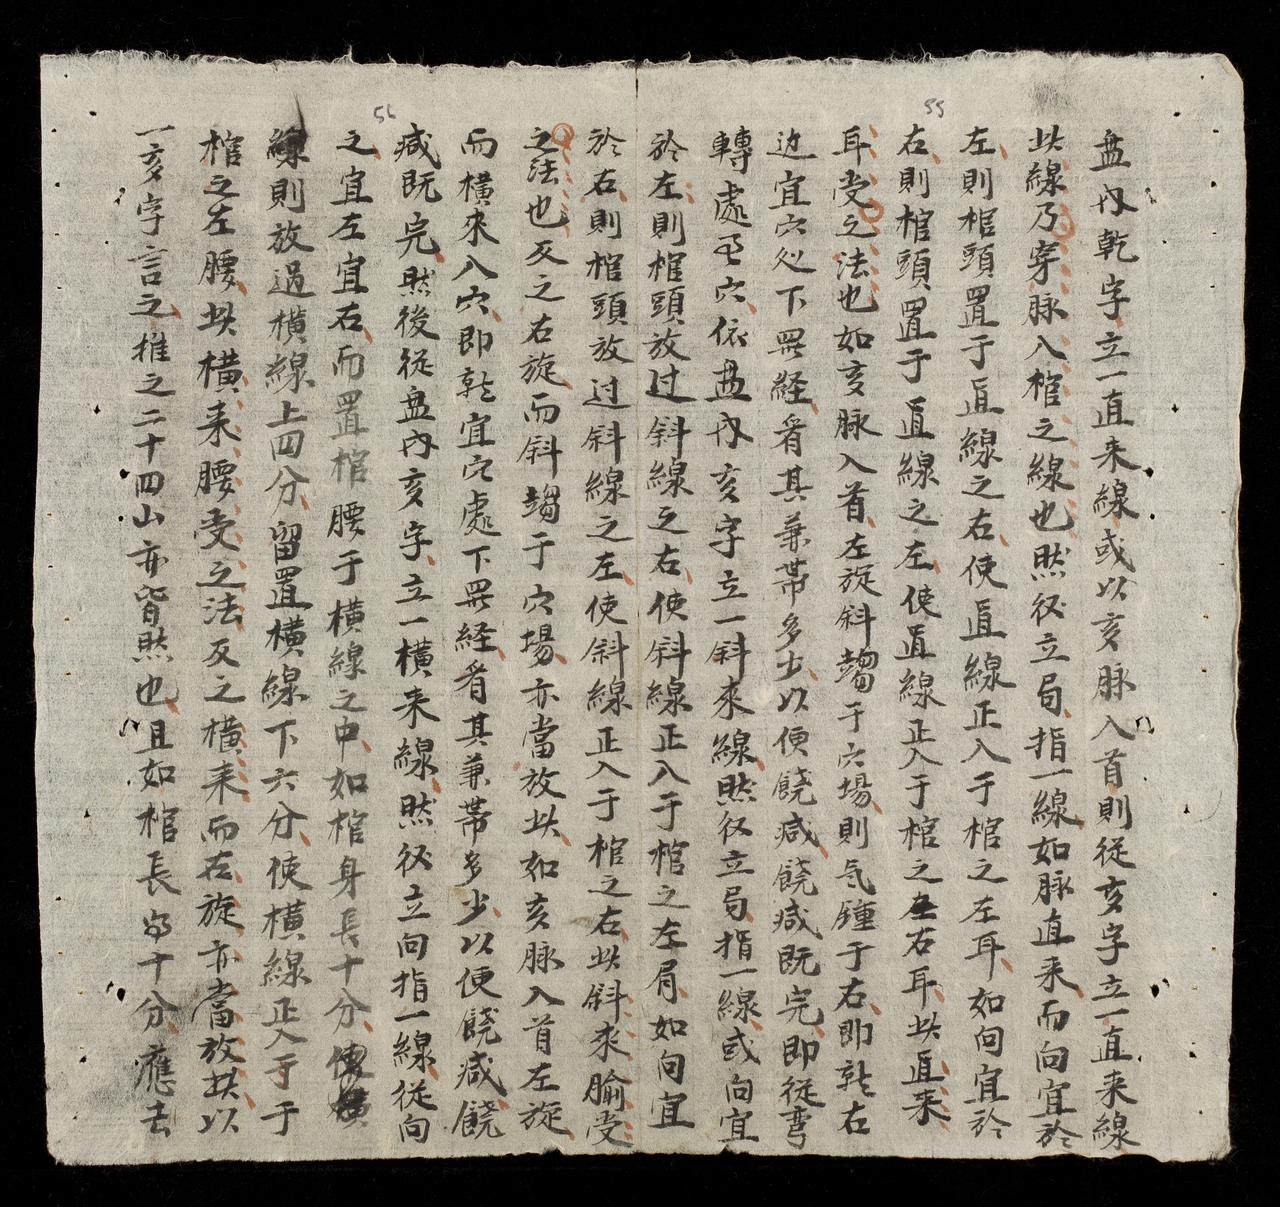 55
盘內乾字立一直来線或以亥脉入首則従亥字立一直来線
此線乃穿脉入棺之線也然後立局指一線如脉直来而向宜於
左則棺頭置于直線之右使直線正入于棺之左耳如向宜於
右則棺頭置于直線之左使直線正入于棺之右耳此直来
耳受之法也如亥脉入首左旋斜趨于穴場則气鍾于右即乾右
边宜穴处下罗経看其兼带多少以便饒减饒减既完即従弯
轉處至穴依盘內亥字立一斜来線然后立局指一線或向宜
於左則棺頭放过斜線之右使斜線正入于棺之左肩如向宜
於右則棺頭放过斜線之左使斜線正入于棺之右此斜来腧受
之法也反之右旋而斜趨于穴場亦當放此如亥脉入首左旋
而横来入穴即乾宜穴處下罗経看其兼带多少以便饒减饒
56
减既完然後従盘內亥字立一横来線然后立向指一線従向
之宜左宜右而置棺腰于横線之中如棺身長十分使横
線則放過横線上四分留置横線下六分使横線正入于于
棺之左腰此横来腰受之法反之横来而右旋亦當放此以
一亥字言之推之二十四山亦皆然也且如棺長十分應去